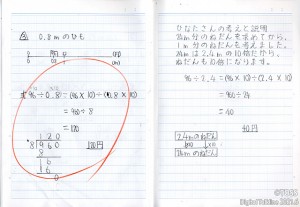 0.8mのひも
式 96÷0.8=(96×10)÷(0.8×10)
=960÷8
=120
120
8)960
8
16
16
0
120円
ひなたさんの考えと説明
24m分のねだんを求めてから、
1m分のねだんを考えました。
24mは2.4mの10倍だから、
ねだんも10倍になります。
96÷2.4=(96×10)÷(2.4×10)
=960÷24
=40
40円
2.4mのねだん
24mのねだん
©TOSS